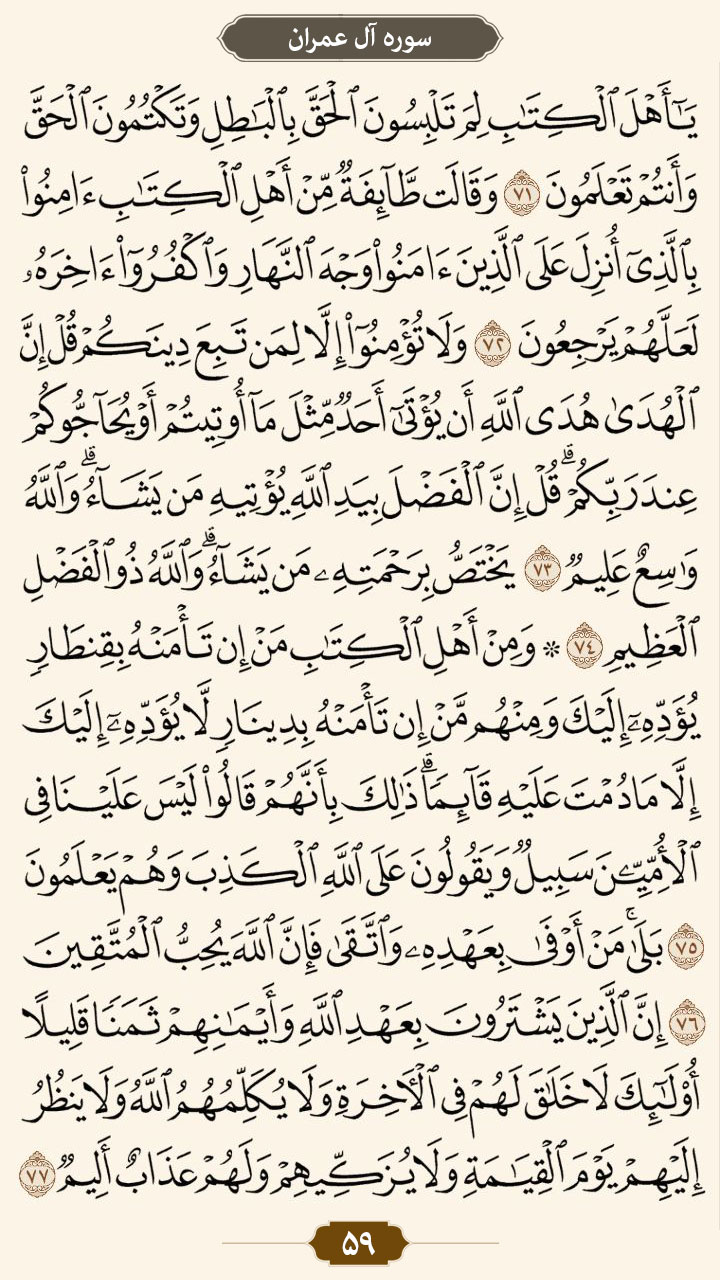 سوره آل عمران
يَـٰٓأَهْلَ ٱلْكِتَـٰبِ لِمَ تَلْبِسُونَ ٱلْحَقَّ بِٱلْبَـٰطِلِ وَتَكْتُمُونَ ٱلْحَقَّ
وَأَنتُمْ تَعْلَمُونَ ٧١ وَقَالَت طَّآئِفَةٌ مِّنْ أَهْلِ ٱلْكِتَـٰبِ ءَامِنُوا۟
بِٱلَّذِىٓ أُنزِلَ عَلَى ٱلَّذِينَ ءَامَنُوا۟ وَجْهَ ٱلنَّهَارِ وَٱكْفُرُوٓا۟ ءَاخِرَهُۥ
لَعَلَّهُمْ يَرْجِعُونَ ٧٢ وَلَا تُؤْمِنُوٓا۟ إِلَّا لِمَن تَبِعَ دِينَكُمْ قُلْ إِنَّ
ٱلْهُدَىٰ هُدَى ٱللَّهِ أَن يُؤْتَىٰٓ أَحَدٌ مِّثْلَ مَآ أُوتِيتُمْ أَوْ يُحَآجُّوكُمْ
عِندَ رَبِّكُمْ ۗ قُلْ إِنَّ ٱلْفَضْلَ بِيَدِ ٱللَّهِ يُؤْتِيهِ مَن يَشَآءُ ۗ وَٱللَّهُ
وَٰسِعٌ عَلِيمٌ ٧٣ يَخْتَصُّ بِرَحْمَتِهِۦ مَن يَشَآءُ ۗ وَٱللَّهُ ذُو ٱلْفَضْلِ
ٱلْعَظِيمِ ٧٤ * وَمِنْ أَهْلِ ٱلْكِتَـٰبِ مَنْ إِن تَأْمَنْهُ بِقِنطَارٍ
يُؤَدِّهِۦٓ إِلَيْكَ وَمِنْهُم مَّنْ إِن تَأْمَنْهُ بِدِينَارٍ لَّا يُؤَدِّهِۦٓ إِلَيْكَ
إِلَّا مَا دُمْتَ عَلَيْهِ قَآئِمًا ۗ ذَٰلِكَ بِأَنَّهُمْ قَالُوا۟ لَيْسَ عَلَيْنَا فِى
ٱلْأُمِّيِّـۧنَ سَبِيلٌ وَيَقُولُونَ عَلَى ٱللَّهِ ٱلْكَذِبَ وَهُمْ يَعْلَمُونَ
٧٥ بَلَىٰ ۚ مَنْ أَوْفَىٰ بِعَهْدِهِۦ وَٱتَّقَىٰ فَإِنَّ ٱللَّهَ يُحِبُّ ٱلْمُتَّقِينَ
٧٦ إِنَّ ٱلَّذِينَ يَشْتَرُونَ بِعَهْدِ ٱللَّهِ وَأَيْمَـٰنِهِمْ ثَمَنًا قَلِيلًا
أُو۟لَـٰٓئِكَ لَا خَلَـٰقَ لَهُمْ فِى ٱلْـَٔاخِرَةِ وَلَا يُكَلِّمُهُمُ ٱللَّهُ وَلَا يَنظُرُ
إِلَيْهِمْ يَوْمَ ٱلْقِيَـٰمَةِ وَلَا يُزَكِّيهِمْ وَلَهُمْ عَذَابٌ أَلِيمٌ ٧٧
۵۹